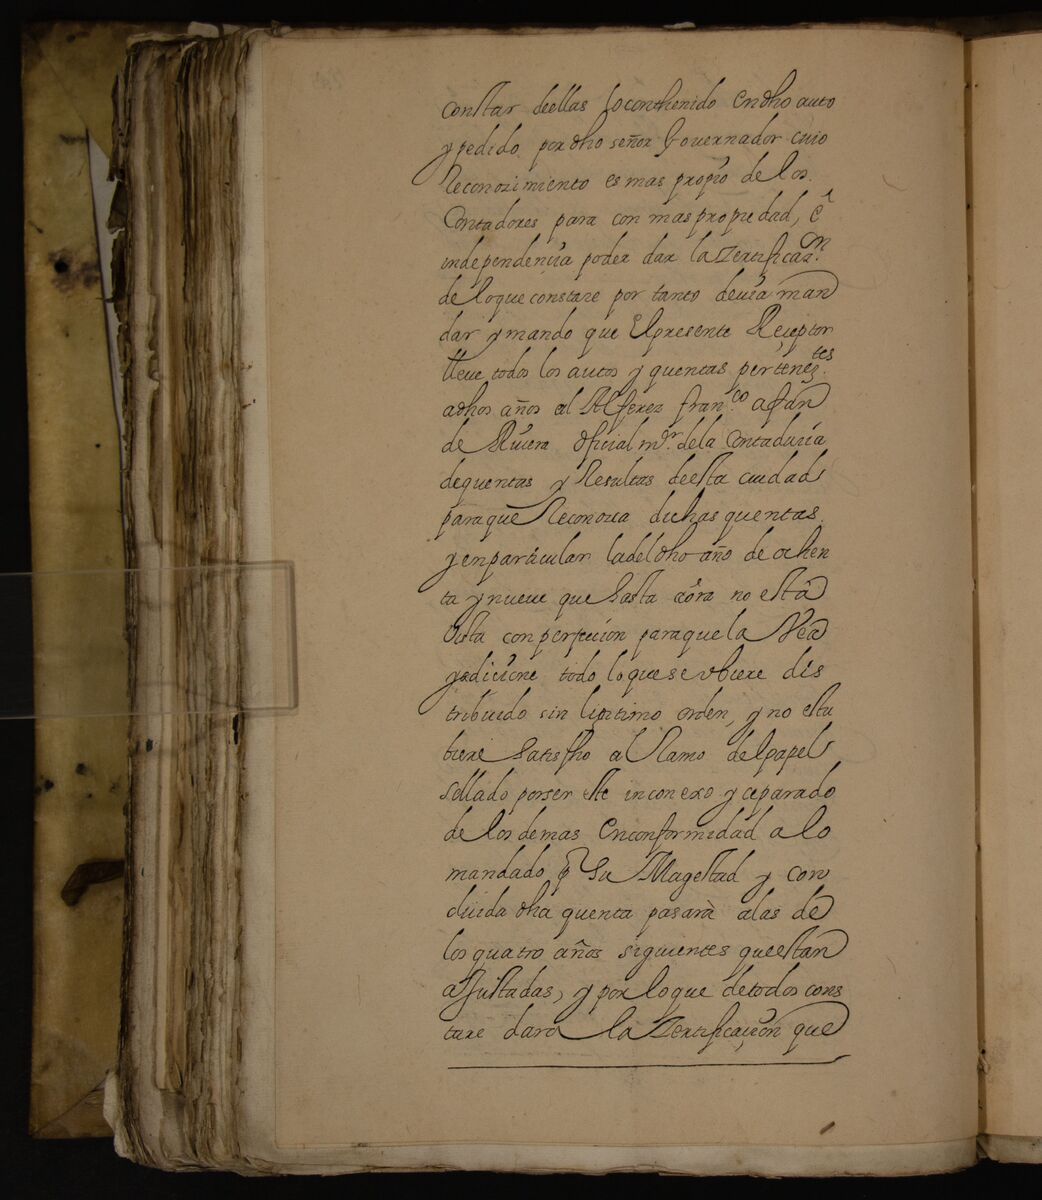 constar deellas loconthenido endho auto
y pedido por dho señor Governador cuio
Reconozimiento es mas propio de los
Contadores para con mas propiedad, é
independencia poder dar la Zertificaz.on
de loque constare por tanto devia man
dar y mando que Elpresente Receptor
lleve todos los autos y quentas pertenez.tes
adhos años al Alferez fran.co afan
de Rivera oficial m.r dela Contaduria
dequentas y Resultas deesta ciudad
paraque Reconozca dichas quentas
y enparticular ladeldho año de ochen
ta y nueve que hasta aora no está
vista con perfeccion paraque la Vea
y adicione todo loquese vbiere dis
tribuido sin lixitimo orden, y no estu
biere satisfho al Ramo delpapel
Sellado porser este inconexo y ceparado
de los demas Enconformidad a lo
mandado p Su Magestad y con
cluida dha quenta pasarà alas de
los quatro años siguientes queestan
ajustadas, y por loque detodos cons
tare dara la Zertificazion que